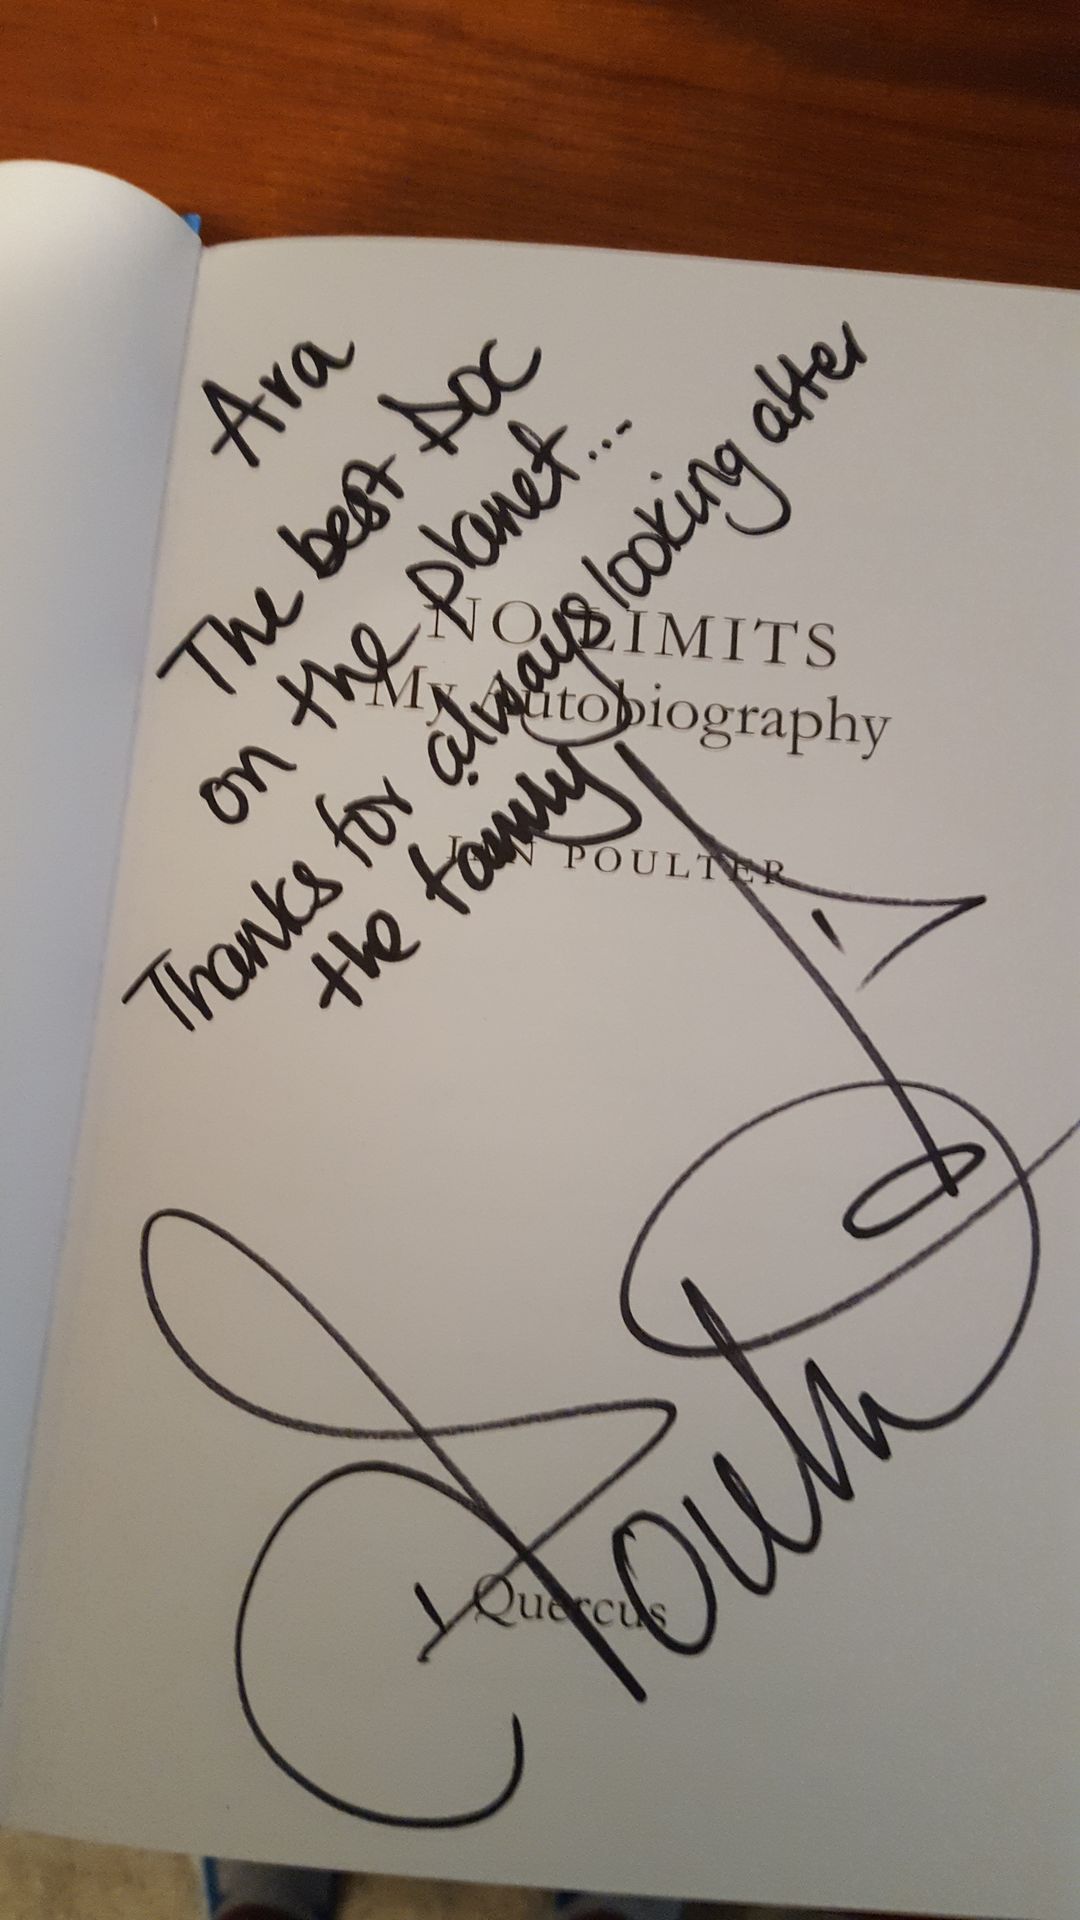 Ara
The best Doc
on the planet...
Thanks for always looking after
the family
NO LIMITS
My Autobiography
IAN POULTER
Poulter
Quercus